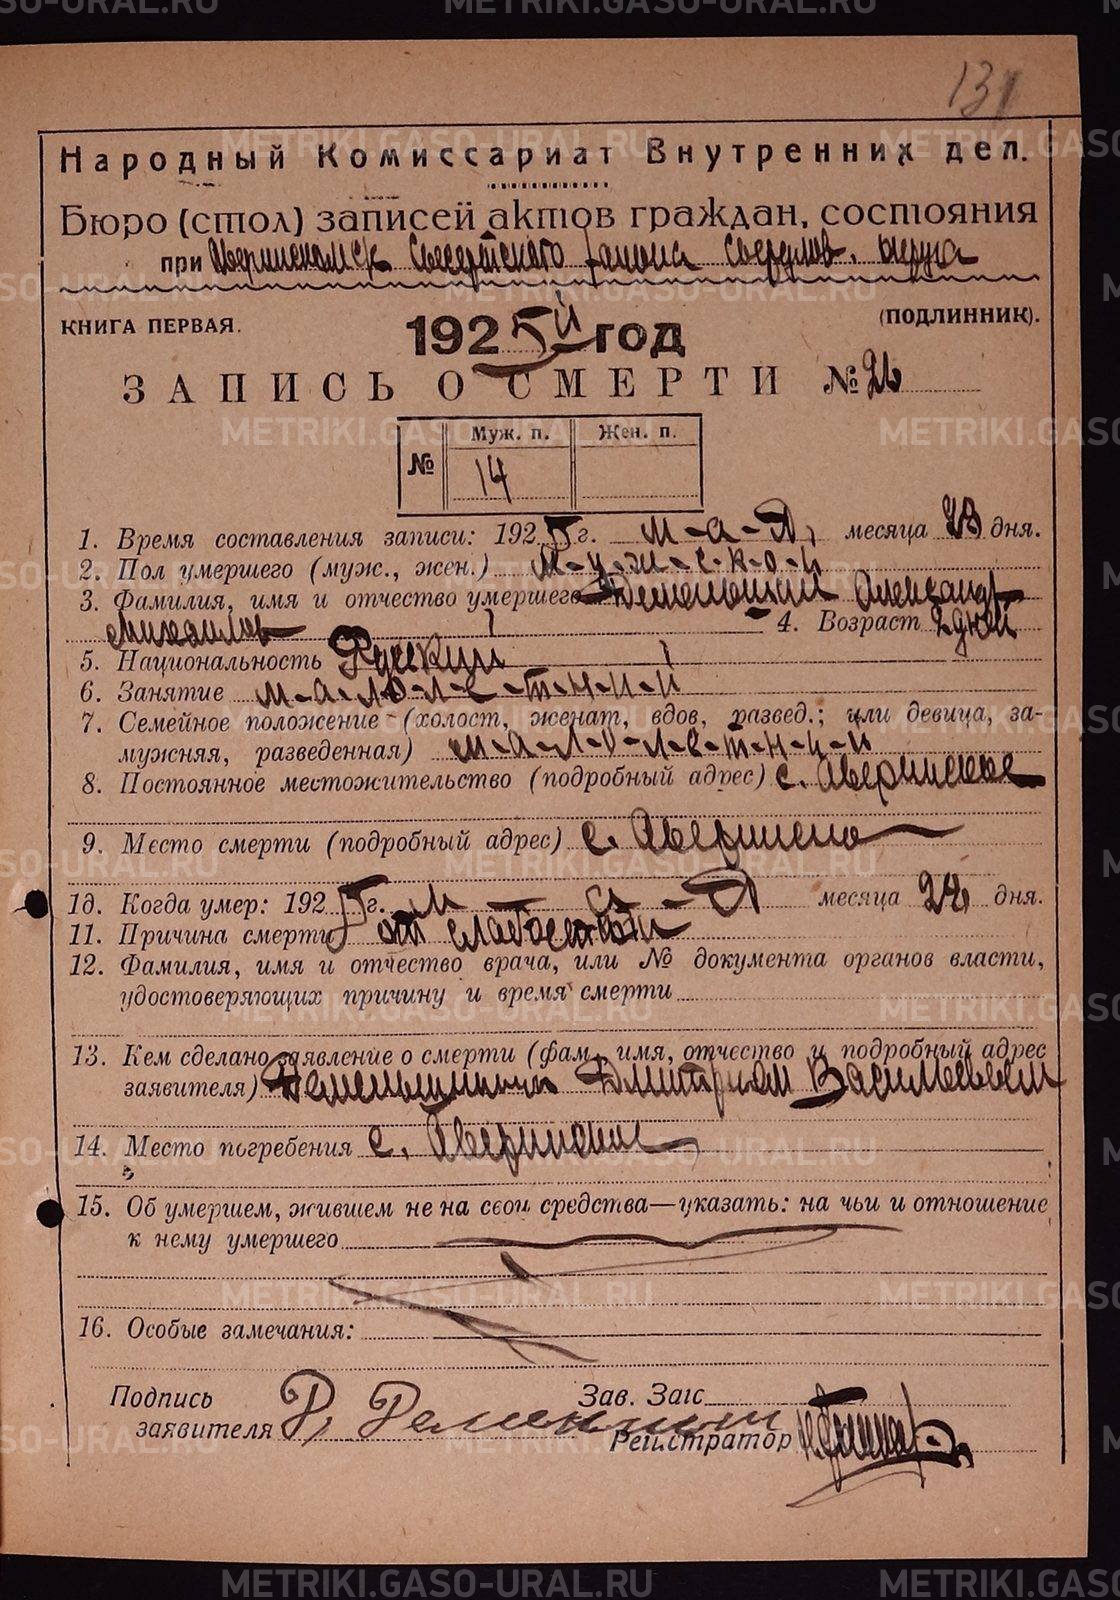 131
Народный Комиссариат Внутренних дел.
Бюро (стол) записей актов граждан. состояния
при Сысертского района Свердлов. округа
КНИГА ПЕРВАЯ. 1925й год (ПОДЛИННИК).
ЗАПИСЬ О СМЕРТИ № 26
Муж. п. Жен. п.
№ 14
1. Время составления записи: 1925 г. м-а-я, месяца 23 дня.
2. Пол умершего (муж., жен.) м-у-ж-с-к-о-й
3. Фамилия, имя и отчество умершего Александр
Михаилов 4. Возраст 2 дней
5. Национальность Русский
6. Занятие м-а-л-о-л-е-т-н-и-й
7. Семейное положение (холост, женат, вдов, развед.; или девица, за-
мужняя, разведенная) м-а-л-о-л-е-т-н-и-й
8. Постоянное местожительство (подробный адрес) с. Аверинское
9. Место смерти (подробный адрес) с.
1д. Когда умер: 1925 г. м - а - я месяца дня.
11. Причина смерти от слабости
12. Фамилия, имя и отчество врача, или № документа органов власти,
удостоверяющих причину и время смерти
13. Кем сделано заявление о смерти (фам., имя, отчество и подробный адрес
заявителя) Дмитрием Васильевым
14. Место погребения с. Аверинское
15. Об умершем, жившем не на свои средства—указать: на чьи и отношение
к нему умершего
16. Особые замечания:
Подпись Зав. Загс
заявителя Д.
Регистратор
METRIKI.GASO-URAL.RU